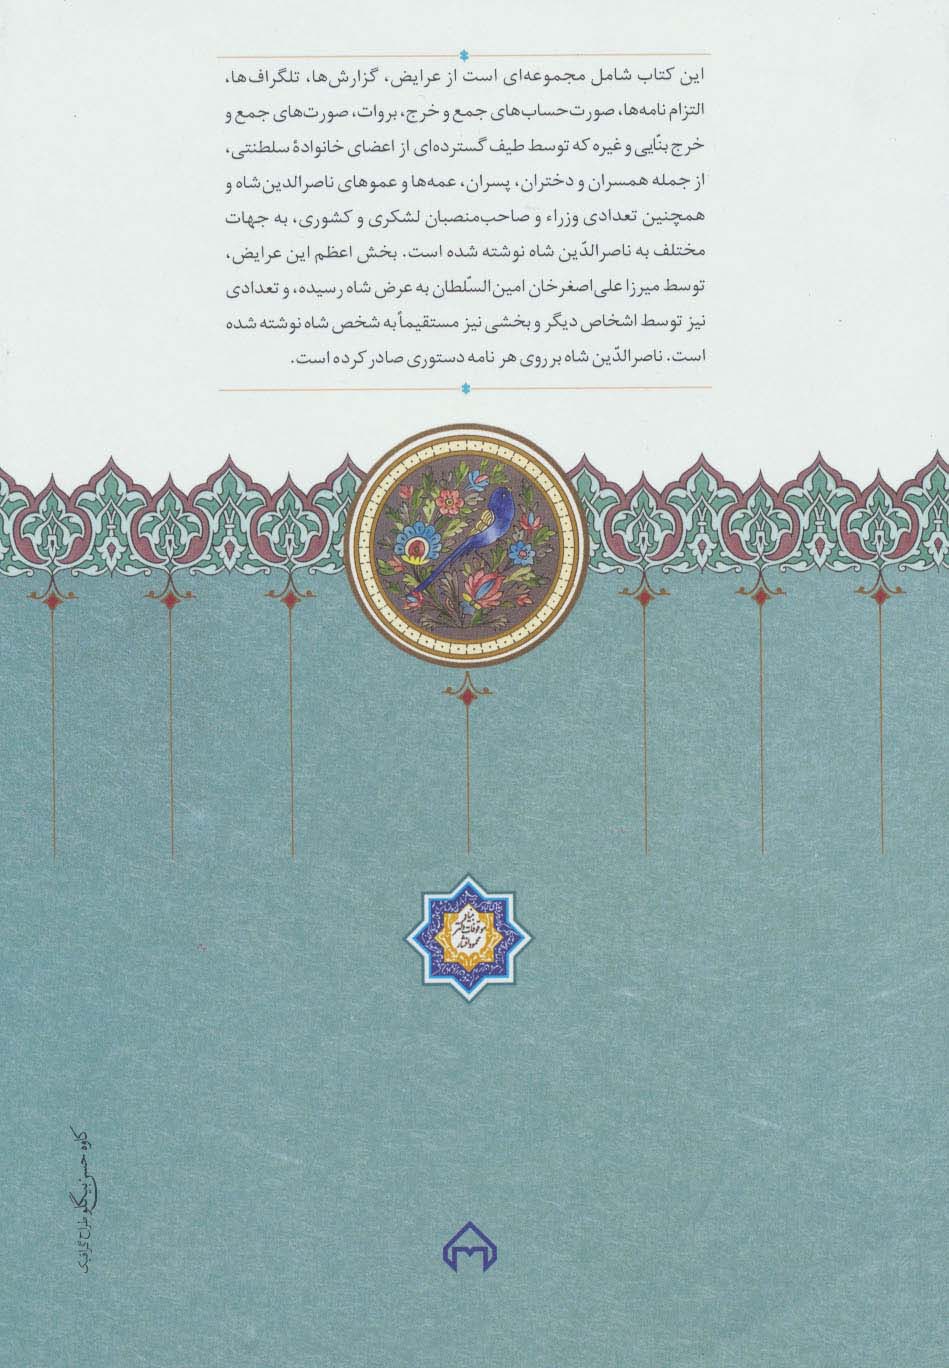 این کتاب شامل مجموعه‌ای است از عرایض، گزارش‌ها، تلگراف‌ها،
التزام‌نامه‌ها، صورت‌حساب‌های جمع و خرج، بروات، صورت‌های جمع و
خرج بنّایی و غیره که توسط طیف گسترده‌ای از اعضای خانوادهٔ سلطنتی،
از جمله همسران و دختران، پسران، عمه‌ها و عموهای ناصرالدین‌شاه و
همچنین تعدادی وزراء و صاحب‌منصبان لشکری و کشوری، به جهات
مختلف به ناصرالدّین شاه نوشته شده است. بخش اعظم این عرایض،
توسط میرزا علی‌اصغرخان امین‌السّلطان به عرض شاه رسیده، و تعدادی
نیز توسط اشخاص دیگر و بخشی نیز مستقیماً به شخص شاه نوشته شده
است. ناصرالدّین شاه بر روی هر نامه دستوری صادر کرده است.
بنیاد
موقوفات دکتر
محمود افشار
کاوه حسن بیگلو طراح گرافیک